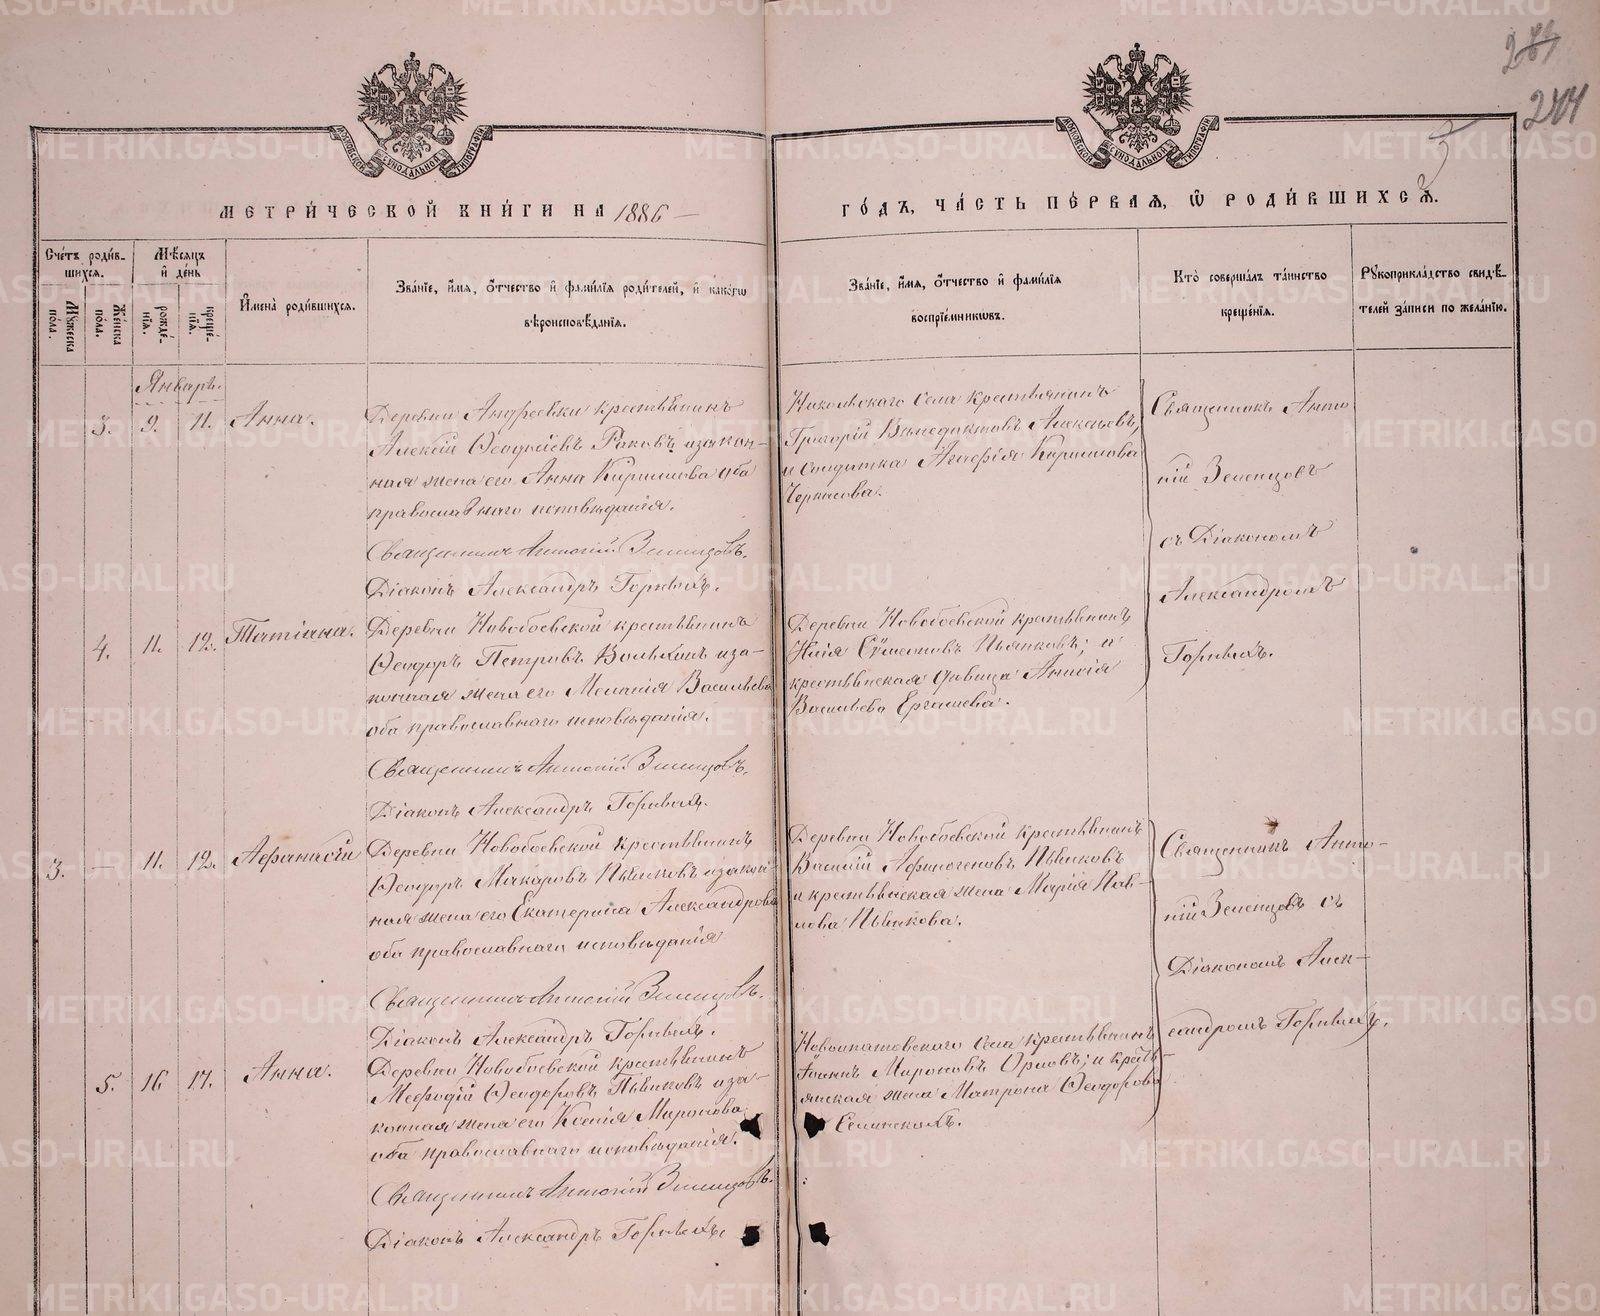 284
244
3
АРХІВСКОЙ СѴНОДАЛЬНОЙ ТИПОГРАФІИ
МЕТРИ́ЧЕСКОЙ КНИ́ГИ НА 1886 —
ГО́ДЪ, ЧА́СТЬ ПЕ́РВАѦ, Ѡ҆ РОДИ́ВШИХСѦ.
Сче́тъ роди́в-
шихсѧ.
Мꙋ́жеска по́ла.
Же́нска по́ла.
Мѣ́сѧцъ
и҆ де́нь
рожде́-
нїѧ.
креще́-
нїѧ.
И҆мена̀ роди́вшихсѧ.
Зва́нїе, и҆́мѧ, ѻ҆́тчество и҆ фами́лїѧ роди́телей, и҆ како́гѡ
вѣроисповѣ́данїѧ.
Зва́нїе, и҆́мѧ, ѻ҆́тчество и҆ фами́лїѧ
воспрїе́мникѡвъ.
Кто̀ соверша́лъ та́инство
креще́нїѧ.
Рꙋкоприкла́дство свидѣ́-
телей за́писи по жела́нїю.
Январь.
3. 9. 11. Анна.
Деревни Андреевки крестьянинъ
Алексій Ѳеодосіевъ Раковъ и закон-
ная жена его Анна Кирилова оба
православнаго исповѣданія.
Священникъ Антоній Зеленцовъ.
Діаконъ Александръ Горныхъ.
Никольскаго Села крестьянинъ
Григорій Венедиктовъ Алексѣевъ,
и Солдатка Агафія Кирилова
Черкасова.
Священникъ Анто
ній Зеленцовъ
съ Діакономъ
Александромъ
Горныхъ.
4. 11. 12. Татіана.
Деревни Новобоевской крестьянинъ
Ѳеодоръ Петровъ Волкинъ и за-
конная жена его Меланія Васильева
оба православнаго исповѣданія.
Священникъ Антоній Зеленцовъ.
Діаконъ Александръ Горныхъ.
Деревни Новобоевской крестьянинъ
Илія Сѵмеоновъ Пьянковъ; и
крестьянская дѣвица Анисія
Васильева Ергашева.
3. — 11. 12. Аѳанасій
Деревни Новобоевской крестьянинъ
Ѳеодоръ Макаровъ Пьянковъ и закон-
ная жена его Екатерина Александрова
оба православнаго исповѣданія
Священникъ Антоній Зеленцовъ.
Діаконъ Александръ Горныхъ.
Деревни Новобоевской крестьянинъ
Василій Аѳиногеновъ Пьянковъ
и крестьянская жена Марія Пав-
лова Пьянкова.
Священникъ Анто-
ній Зеленцовъ съ
Діакономъ Алек-
сандромъ Горныхъ.
5. 16 17. Анна.
Деревни Новобоевской крестьянинъ
Меѳодій Ѳеодоровъ Пьянковъ и за-
конная жена его Ксенія Миронова
оба православнаго исповѣданія.
Священникъ Антоній Зеленцовъ.
Діаконъ Александръ Горныхъ
Новоипатовскаго Села крестьянинъ
Іоаннъ Мироновъ Орловъ; и крестъ-
янская жена Матрона Ѳеодорова
Селинскихъ.
METRIKI.GASO-URAL.RU